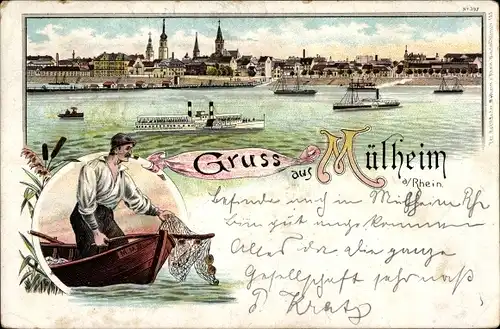 Gruss aus Mülheim
a/Rhein.
Befinde mich in Mülheim Rh
bin gut angekommen
Alles da die ganze
Gesellschaft sehr naß
P. Kratz